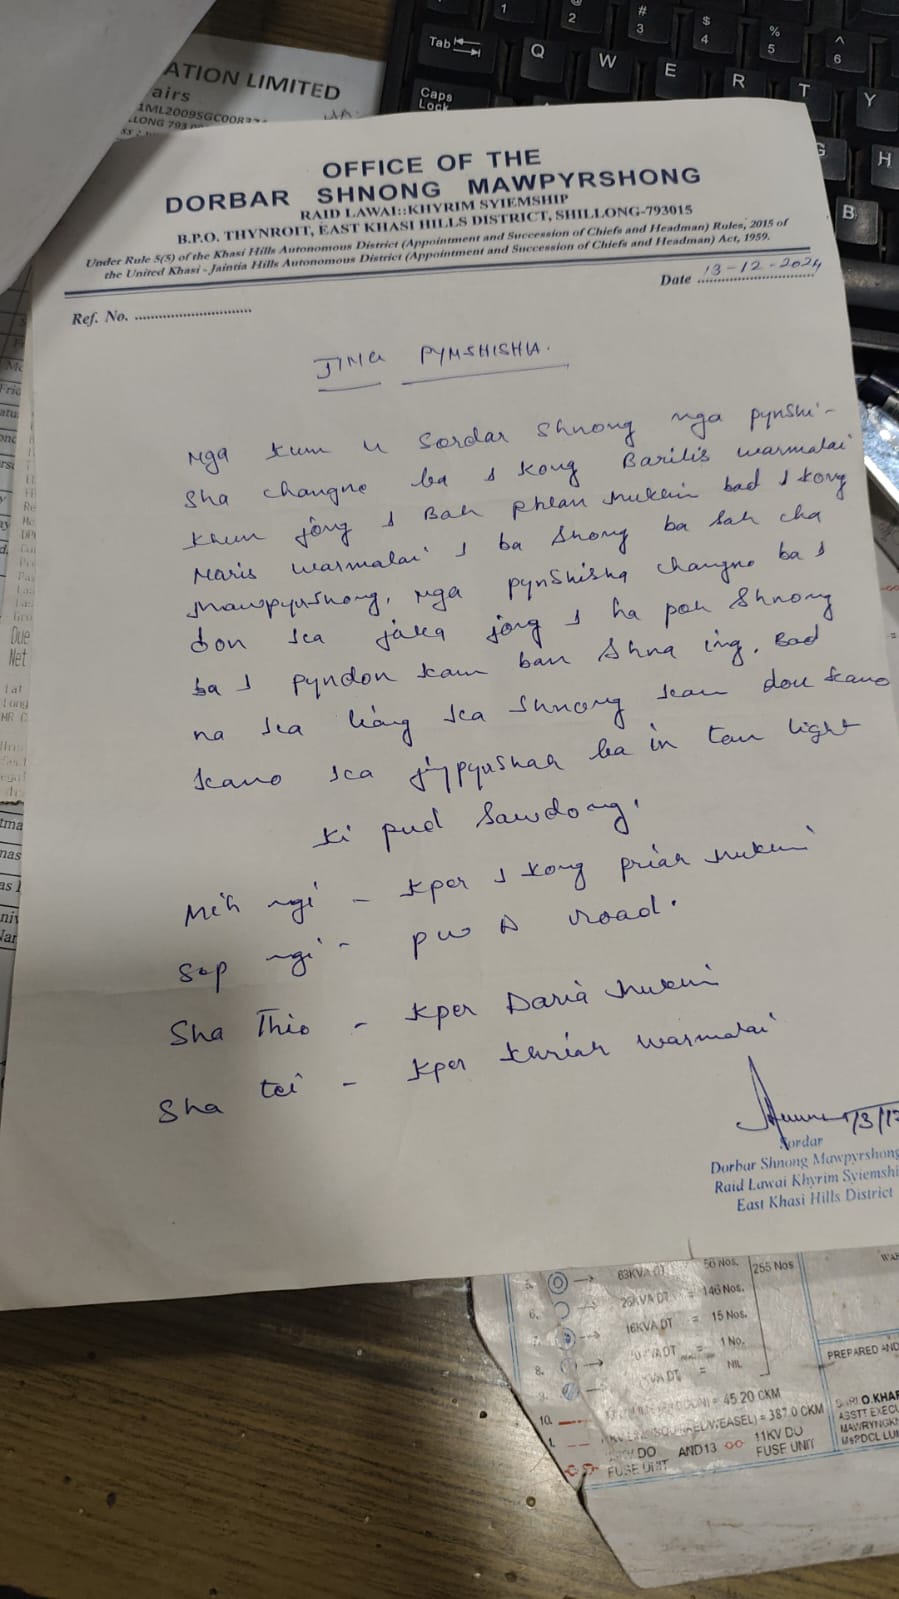 ATION LIMITED
airs
OFFICE OF THE
DORBAR SHNONG MAWPYRSHONG
RAID LAWAI::KHYRIM SYIEMSHIP
B.P.O. THYNROIT, EAST KHASI HILLS DISTRICT, SHILLONG-793015
Under Rule 5(5) of the Khasi Hills Autonomous District (Appointment and Succession of Chiefs and Headman) Rules, 2015 of
the United Khasi - Jaintia Hills Autonomous District (Appointment and Succession of Chiefs and Headman) Act, 1959.
Date 13-12-2024
Ref. No.
JING PYNSHISHA.
Nga kum u Sordar Shnong nga pynshi-
sha changne ba I kong Barilis warmalai
khun jong I Bah phlan mukhim bad I kong
Maris warmalai I ba Shong ba sah cha
Mawpyrshong, nga pynshisha changne ba I
don ka jaka jong I ha poh Shnong
ba I pyndon kam ban Shna ing. Bad
na ka liang ka Shnong kam don kano
kano ka jingpyrshah ba in tan light
ki pud Sawdong.
Mih ngi - kper I kong priah mukhim
Sep ngi - PWD road.
Sha Thie - kper Daria mukhim
Sha tei - kper khriah warmalai
Sordar
Dorbar Shnong Mawpyrshong
Raid Lawai Khyrim Syiemshi
East Khasi Hills District
63KVA DT 50 Nos.
255 Nos
25KVA DT = 146 Nos.
16KVA DT = 15 Nos.
= 1 No.
KVA DT = NIL
= 45.20 CKM
= 387.0 CKM
DO AND13 11KV DO
FUSE UNIT FUSE UNIT
PREPARED AND
O.KHAR
ASSTT EXECU
MAWRYNGK
Tab
Q W E R T Y
Caps
Lock
G H
B
Due
Net